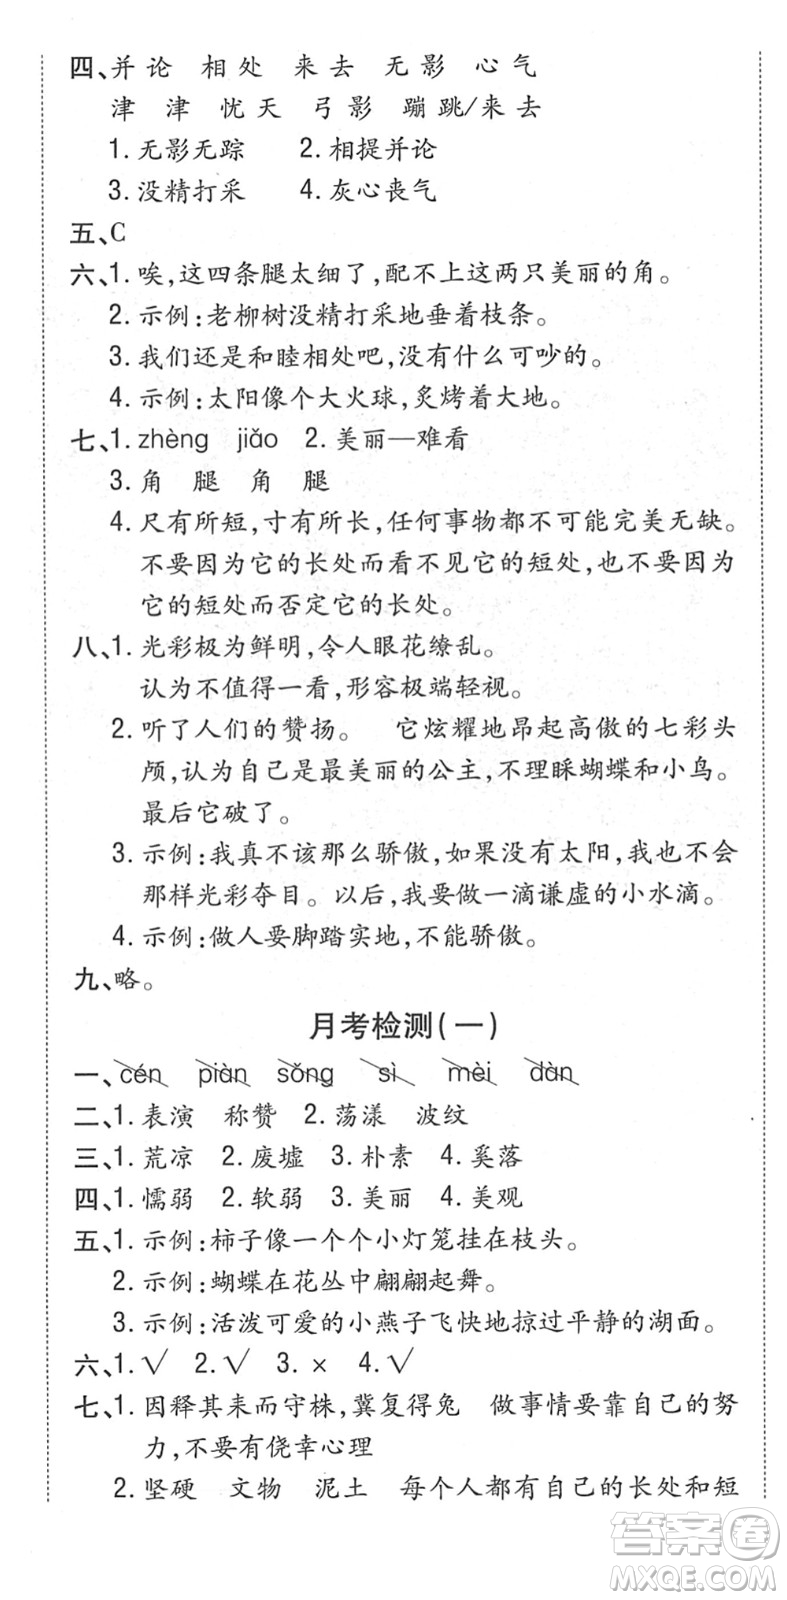 四、并论 相处 来去 无影 心气
津津 忧天 弓影 蹦跳/来去
1. 无影无踪 2. 相提并论
3. 没精打采 4. 灰心丧气
五、C
六、1. 唉,这四条腿太细了,配不上这两只美丽的角。
2. 示例:老柳树没精打采地垂着枝条。
3. 我们还是和睦相处吧,没有什么可吵的。
4. 示例:太阳像个大火球,炙烤着大地。
七、1. zhèng jiǎo 2. 美丽—难看
3. 角 腿 角 腿
4. 尺有所短,寸有所长,任何事物都不可能完美无缺。
不要因为它的长处而看不见它的短处,也不要因为
它的短处而否定它的长处。
八、1. 光彩极为鲜明,令人眼花缭乱。
认为不值得一看,形容极端轻视。
2. 听了人们的赞扬。 它炫耀地昂起高傲的七彩头
颅,认为自己是最美丽的公主,不理睬蝴蝶和小鸟。
最后它破了。
3. 示例:我真不该那么骄傲,如果没有太阳,我也不会
那样光彩夺目。以后,我要做一滴谦虚的小水滴。
4. 示例:做人要脚踏实地,不能骄傲。
九、略。
月考检测(一)
一、cén piàn sǒng sì mèi dàn
二、1. 表演 称赞 2. 荡漾 波纹
三、1. 荒凉 2. 废墟 3. 朴素 4. 奚落
四、1. 懦弱 2. 软弱 3. 美丽 4. 美观
五、1. 示例:柿子像一个个小灯笼挂在枝头。
2. 示例:蝴蝶在花丛中翩翩起舞。
3. 示例:活泼可爱的小燕子飞快地掠过平静的湖面。
六、1. √ 2. √ 3. × 4. √
七、1. 因释其耒而守株,冀复得兔 做事情要靠自己的努
力,不要有侥幸心理
2. 坚硬 文物 泥土 每个人都有自己的长处和短
答案圈
MXQE.COM